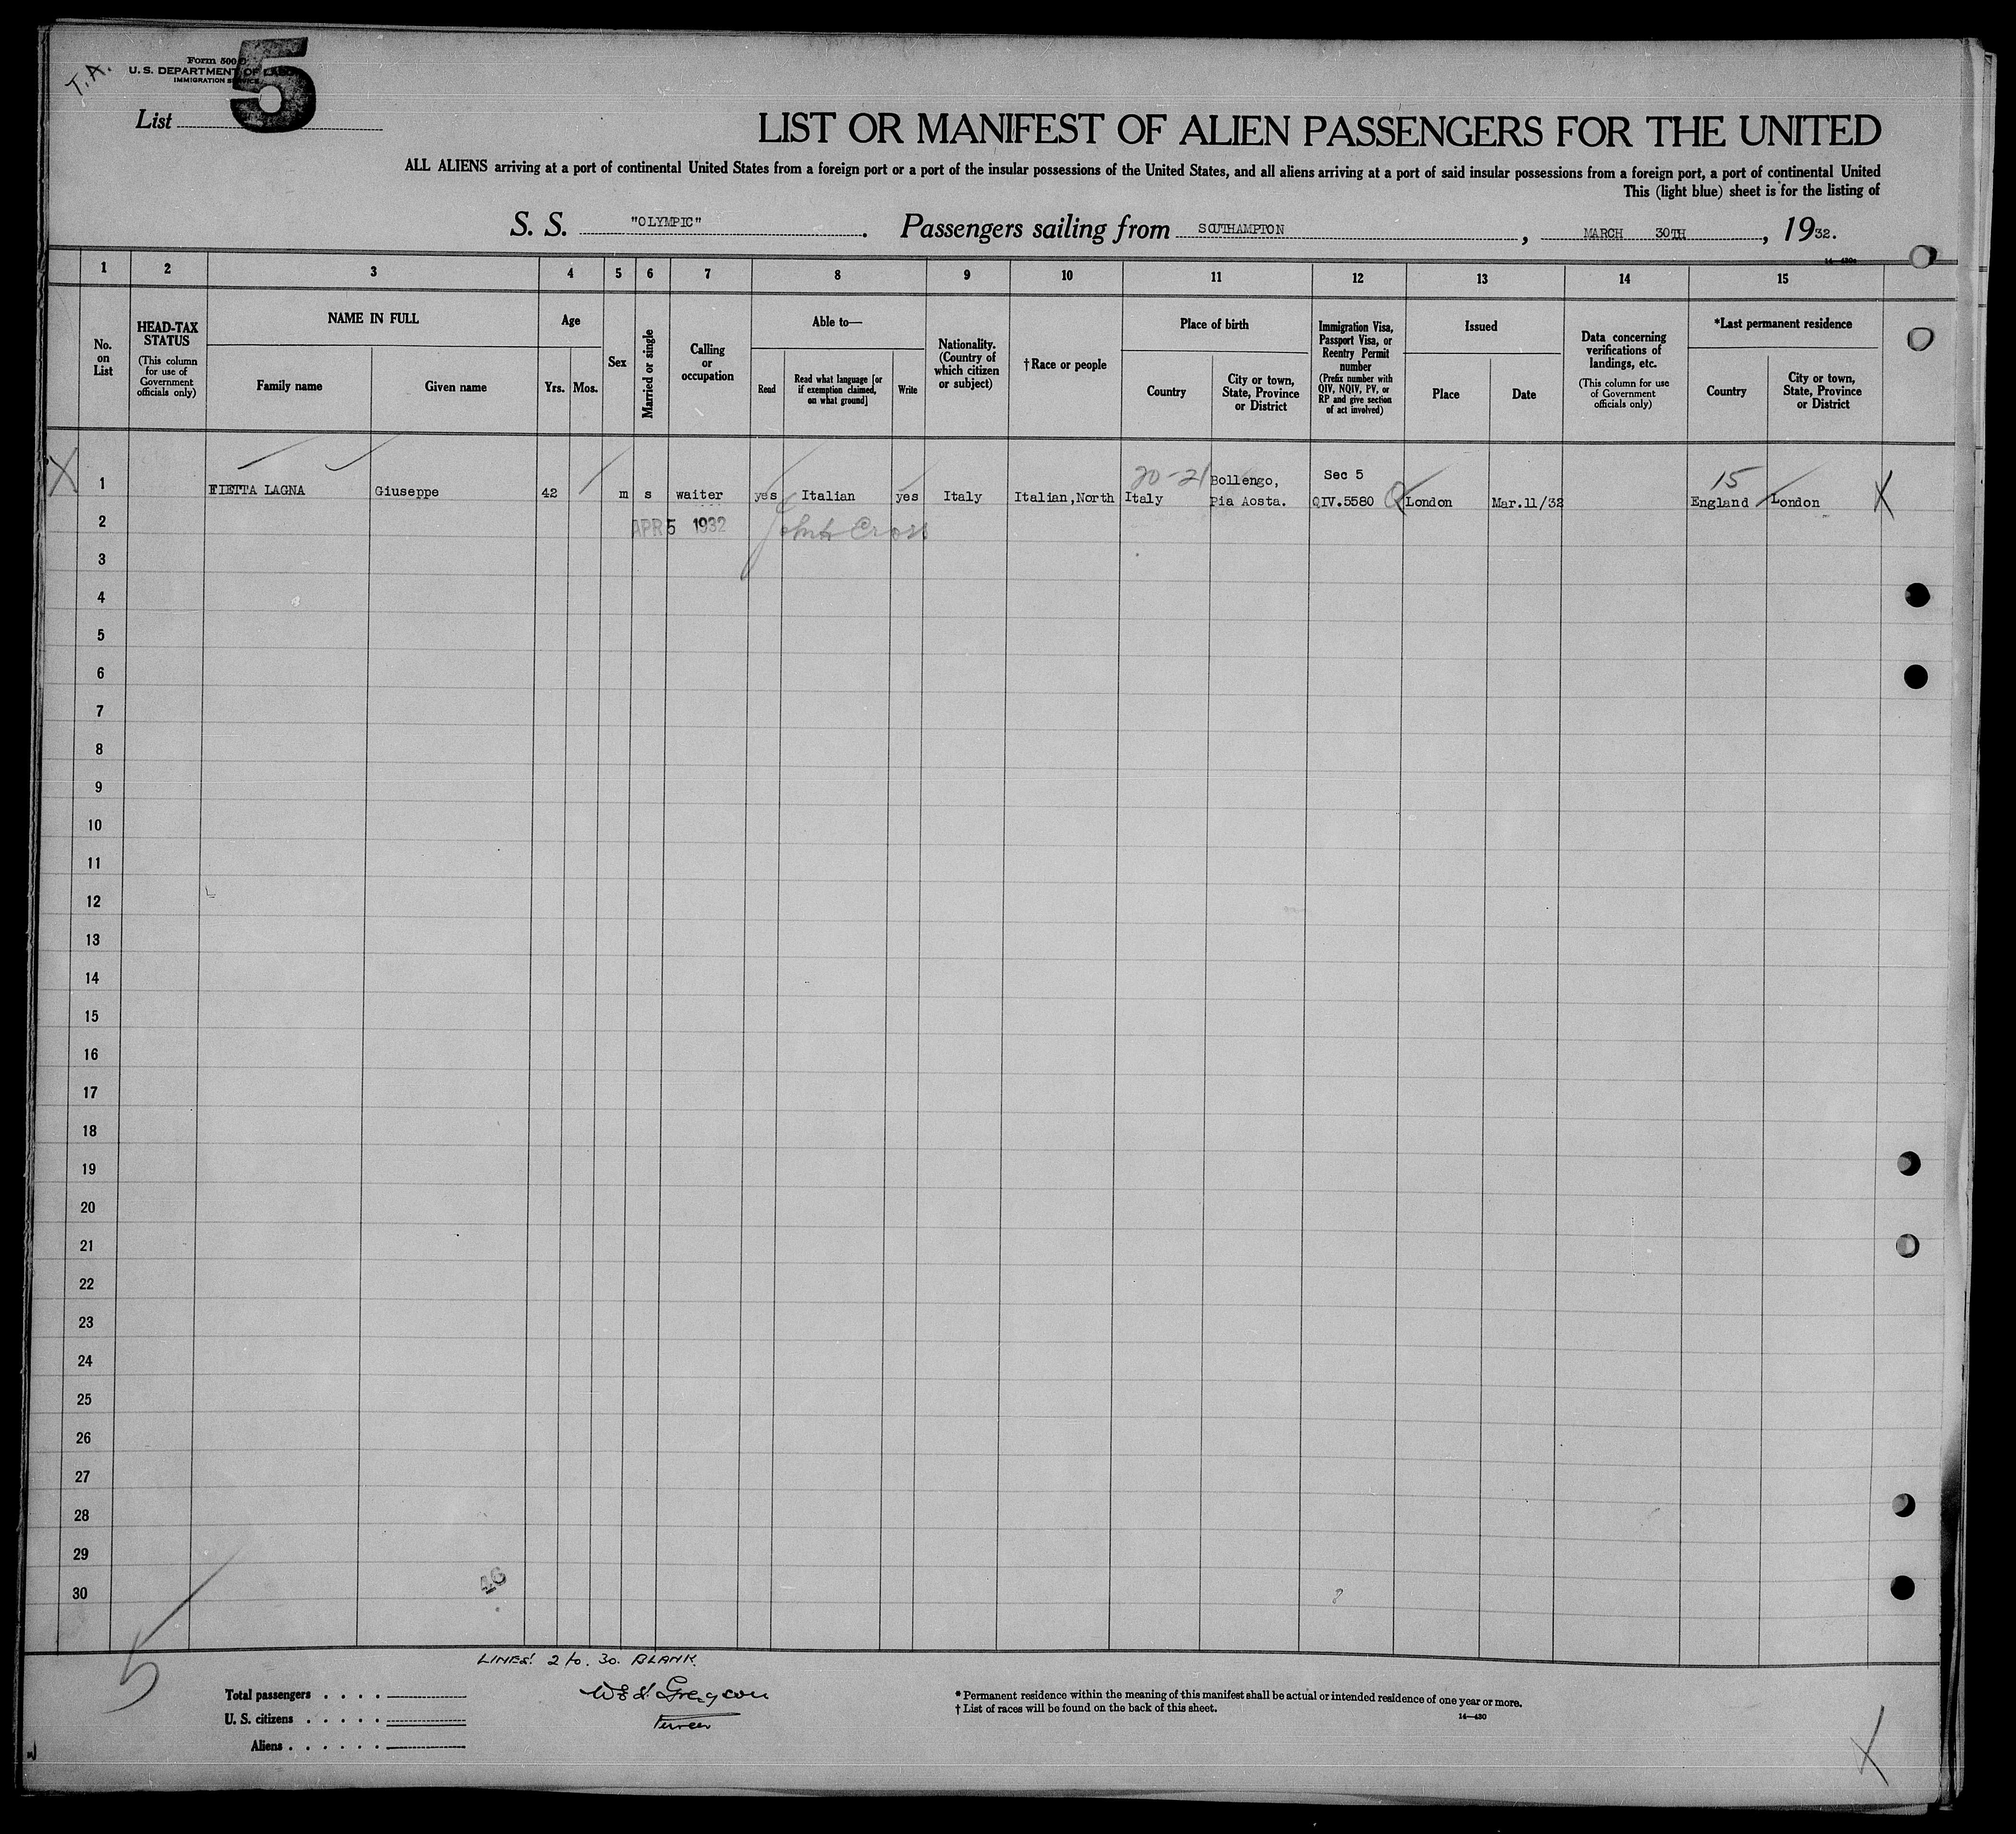 T.A.
Form 500 D
U. S. DEPARTMENT OF LABOR
IMMIGRATION SERVICE
5
List
LIST OR MANIFEST OF ALIEN PASSENGERS FOR THE UNITED
ALL ALIENS arriving at a port of continental United States from a foreign port or a port of the insular possessions of the United States, and all aliens arriving at a port of said insular possessions from a foreign port, a port of continental United
This (light blue) sheet is for the listing of
S. S. "OLYMPIC". Passengers sailing from SOUTHAMPTON, MARCH 30TH, 1932.
1 2 3 4 5 6 7 8 9 10 11 12 13 14 15
No. on List
HEAD-TAX STATUS
(This column for use of Government officials only)
NAME IN FULL
Family name
Given name
Age
Yrs.
Mos.
Sex
Married or single
Calling or occupation
Able to—
Read
Read what language [or if exemption claimed, on what ground]
Write
Nationality. (Country of which citizen or subject)
†Race or people
Place of birth
Country
City or town, State, Province or District
Immigration Visa, Passport Visa, or Reentry Permit number
(Prefix number with QIV, NQIV, PV, or RP and give section of act involved)
Issued
Place
Date
Data concerning verifications of landings, etc.
(This column for use of Government officials only)
*Last permanent residence
Country
City or town, State, Province or District
20-21 Bollengo, Sec 5 15
X 1 FIETTA LAGNA Giuseppe 42 m s waiter yes Italian yes Italy Italian,North Italy Pia Aosta. QIV.5580 London Mar.11/32 England London X
2 APR 5 1932 John Cross
3
4
5
6
7
8
9
10
11
12
13
14
15
16
17
18
19
20
21
22
23
24
25
26
27
28
29
30
46
5
LINES 2 to. 30. BLANK.
Total passengers
U. S. citizens
Aliens
Purser
* Permanent residence within the meaning of this manifest shall be actual or intended residence of one year or more.
† List of races will be found on the back of this sheet.
14—430
X